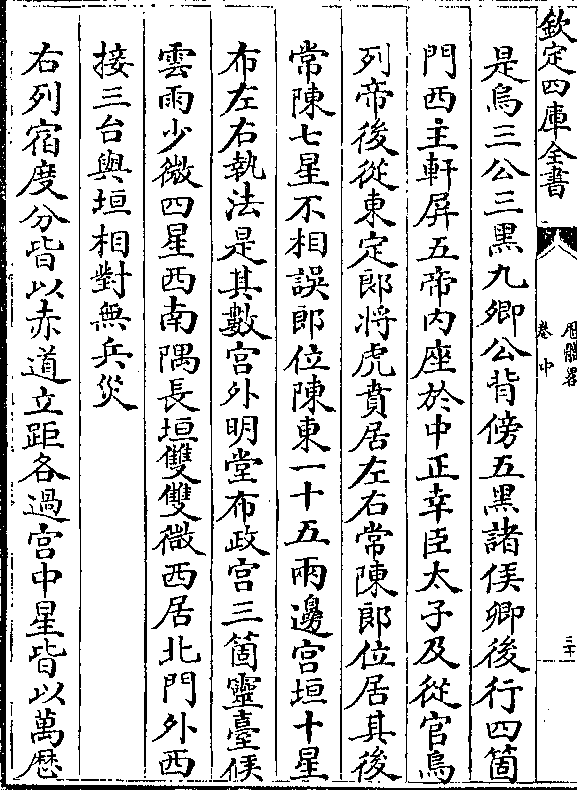 欽定四庫全書
卷中
三十
是烏三公三黑九卿公背傍五黑諸侯卿後行四箇
門西主軒屏五帝内座於中正幸臣太子及從官烏
列帝後從東定郎将虎賁居左右常陳郎位居其後
常陳七星不相誤郎位陳東一十五兩邊宫垣十星
布左右執法是其數宫外明堂布政宫三箇靈臺候
雲雨少微四星西南隅長垣雙雙微西居北門外西
接三台與垣相對無兵災
右列宿度分皆以赤道立距各過宫中星皆以萬歴